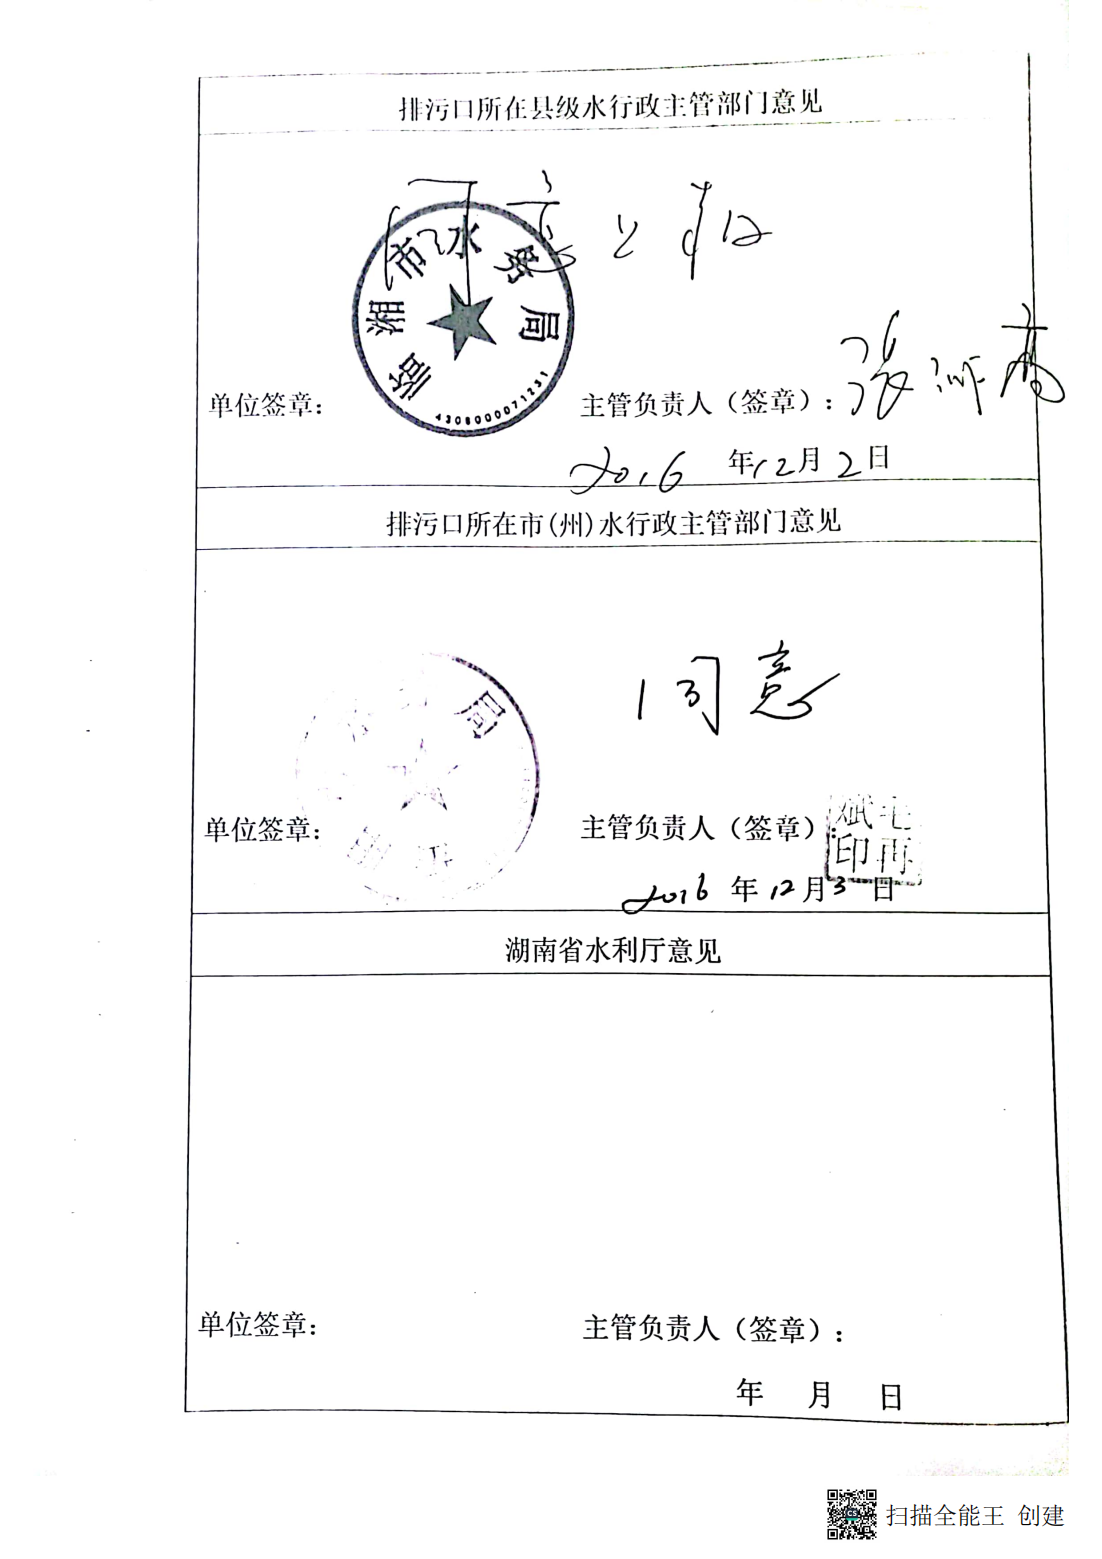 排污口所在县级水行政主管部门意见
同意上报
临湘市水务局
4306000071231
单位签章：
主管负责人（签章）：张
2016年12月2日
排污口所在市(州)水行政主管部门意见
同意
局
单位签章：
主管负责人（签章）：
毛再斌印
2016年12月3日
湖南省水利厅意见
单位签章：
主管负责人（签章）：
年 月 日
扫描全能王 创建